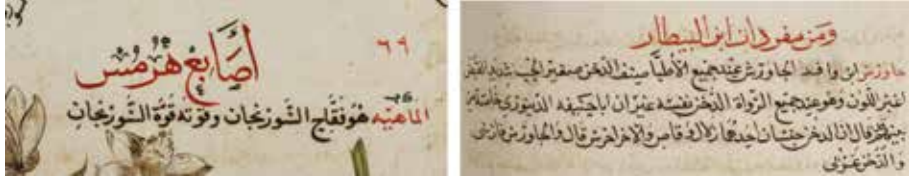 ٦٩
أصابع هرمس
الماهيّة هو فقاح السورنجان وقوته قوة السورنجان
ومن مفردات ابن البيطار
جاورس ابن وافد الجاورس عند جميع الأطبا صنف من الدخن صغير الحب شديد القبض
اغبر اللون وهو عند جميع الرواة الدخن نفسه غير ان ابا حنيفه الدينوري خاصة
بينهما قال ان الدخن جنسان احدهما زلال وقاص والاخر اخرس قال والجاورس فارسي
والدخن عربي